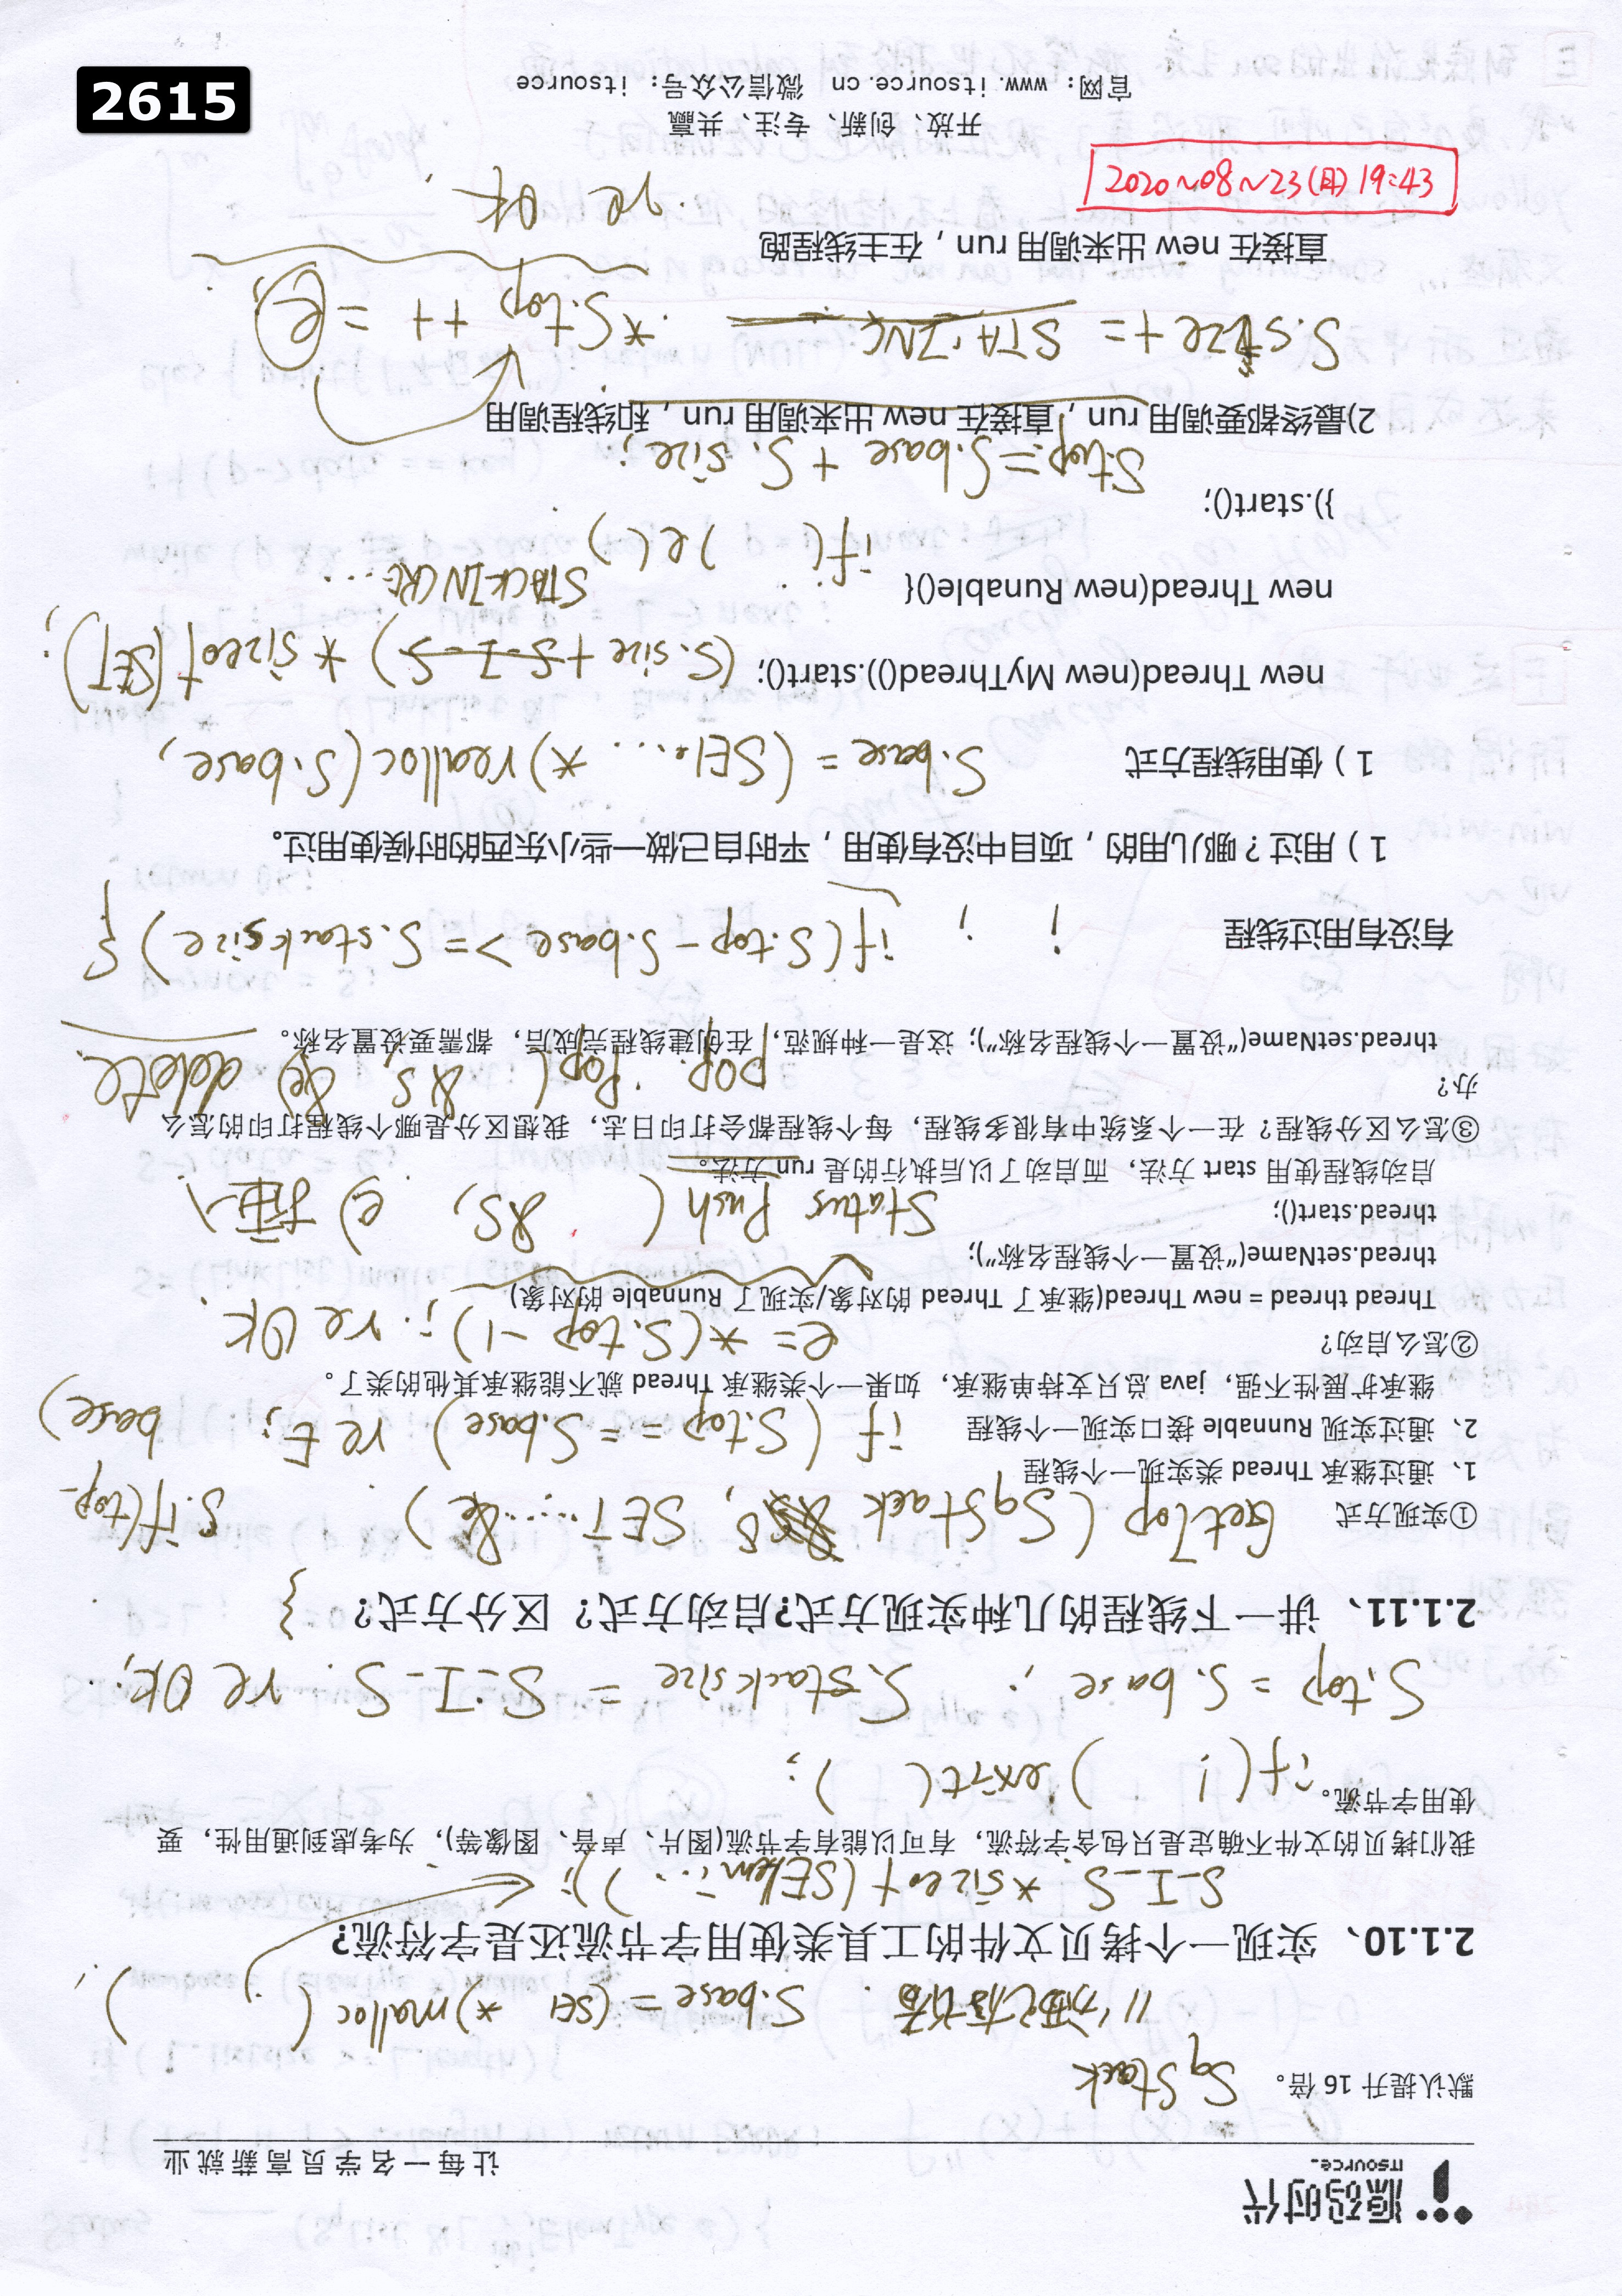 源码时代
ITSOURCE
让每一名学员高薪就业
默认提升 16 倍。
SqStack
S.base = (SEl *) malloc ( )
2.1.10、 实现一个拷贝文件的工具类使用字节流还是字符流?
S_I_S * sizeof (SElem ... ) );
我们拷贝的文件不确定是只包含字符流，有可以能有字节流(图片、声音、图像等)，为考虑到通用性，要
使用字节流。
if ( ! ) exit ( ) ;
S.top = S.base ; S.stacksize = S-I-S. re OK;
2.1.11、 讲一下线程的几种实现方式?启动方式？区分方式?
}
①实现方式
GetTop ( SqStack S, SET ...... &e )
1、 通过继承 Thread 类实现一个线程
2、 通过实现 Runnable 接口实现一个线程
if ( S.top == S.base ) re E ;
base)
继承扩展性不强，java 总只支持单继承，如果一个类继承 Thread 就不能继承其他的类了。
②怎么启动？
e = * (S.top - 1) ; re OK
Thread thread = new Thread(继承了 Thread 的对象/实现了 Runnable 的对象)
thread.setName("设置一个线程名称");
thread.start();
Status Push ( &S, e)
启动线程使用 start 方法，而启动了以后执行的是 run 方法。
③怎么区分线程？在一个系统中有很多线程，每个线程都会打印日志，我想区分是哪个线程打印的怎么
办?
pop. Pop( &S, &e) delete.
thread.setName("设置一个线程名称"); 这是一种规范，在创建线程完成后，都需要设置名称。
有没有用过线程
if (S.top - S.base >= S.stacksize ) {
1）用过？哪儿用的，项目中没有使用，平时自己做一些小东西的时候使用过。
1）使用线程方式
S.base = (SEl... *) realloc (S.base,
new Thread(new MyThread()).start();
(S.size + S-I-S) * sizeof (SET) ;
STACKINCRE ...
new Thread(new Runable(){
if( ) e( )
}).start();
S.top = S.base + S.size ;
2)最终都要调用 run，直接在 new 出来调用 run，和线程调用
S.size += STA.INC
* S.top ++ = e ;
直接在 new 出来调用 run，在主线程跑
re OK .
开放、创新、专注、共赢
官网：www.itsource.cn 微信公众号：itsource
2020~08~23(日) 19:43
2615